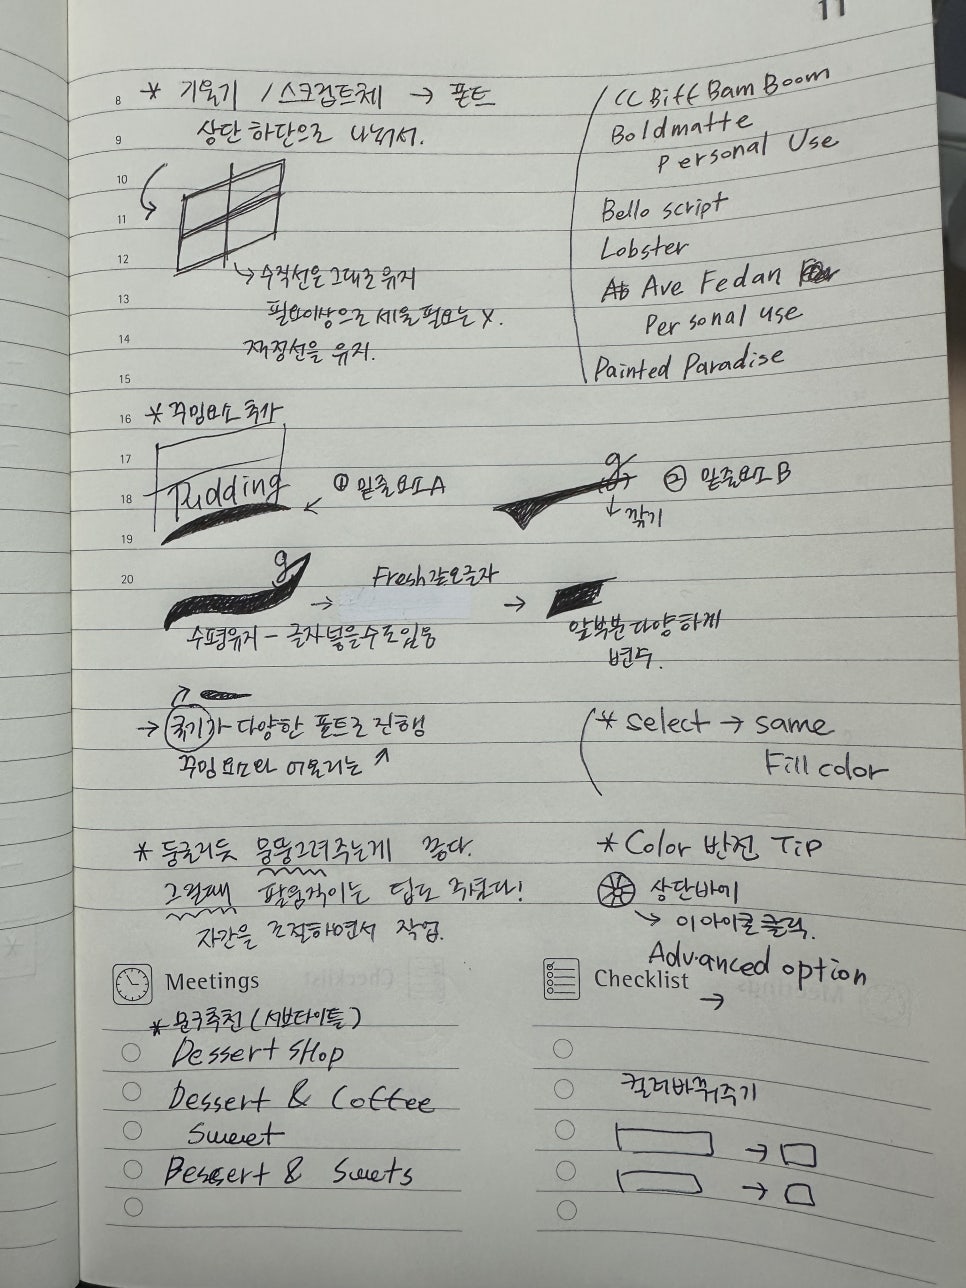 11
8 * 기울기 / 스크립트체 → 폰트
9 상단 하단으로 나눠서.
10
11
12
→ 수직선을 그대로 유지
13 필요이상으로 세울 필요는 X.
14 적정선을 유지.
15
CC Biff Bam Boom
Boldmatte
Personal Use
Bello script
Lobster
Ave Fedan
Personal use
Painted Paradise
16 * 꾸밈요소 추가
17
18 Pudding ← ① 밑줄요소 A
g ② 밑줄요소 B
↓ 깎기
19
20
g
Fresh같은글자
→ →
수평유지 - 글자 넣을수도 있음
앞부분 다양하게
변주.
→ 굵기가 다양한 폰트로 진행
꾸밈요소와 어울리는
* select → same
Fill color
* 둥글리듯 뭉뚱그려주는게 좋다.
그럴때 팔움직이는 팁도 주셨다!
자간을 조절하면서 작업.
* Color 반전 Tip
상단바에
→ 이 아이콘 클릭.
Advanced option
→
Meetings
* 문구추천 (서브타이틀)
Dessert SHop
Dessert & Coffee
Sweet
Dessert & Sweets
Checklist
컬러바꿔주기
→
→